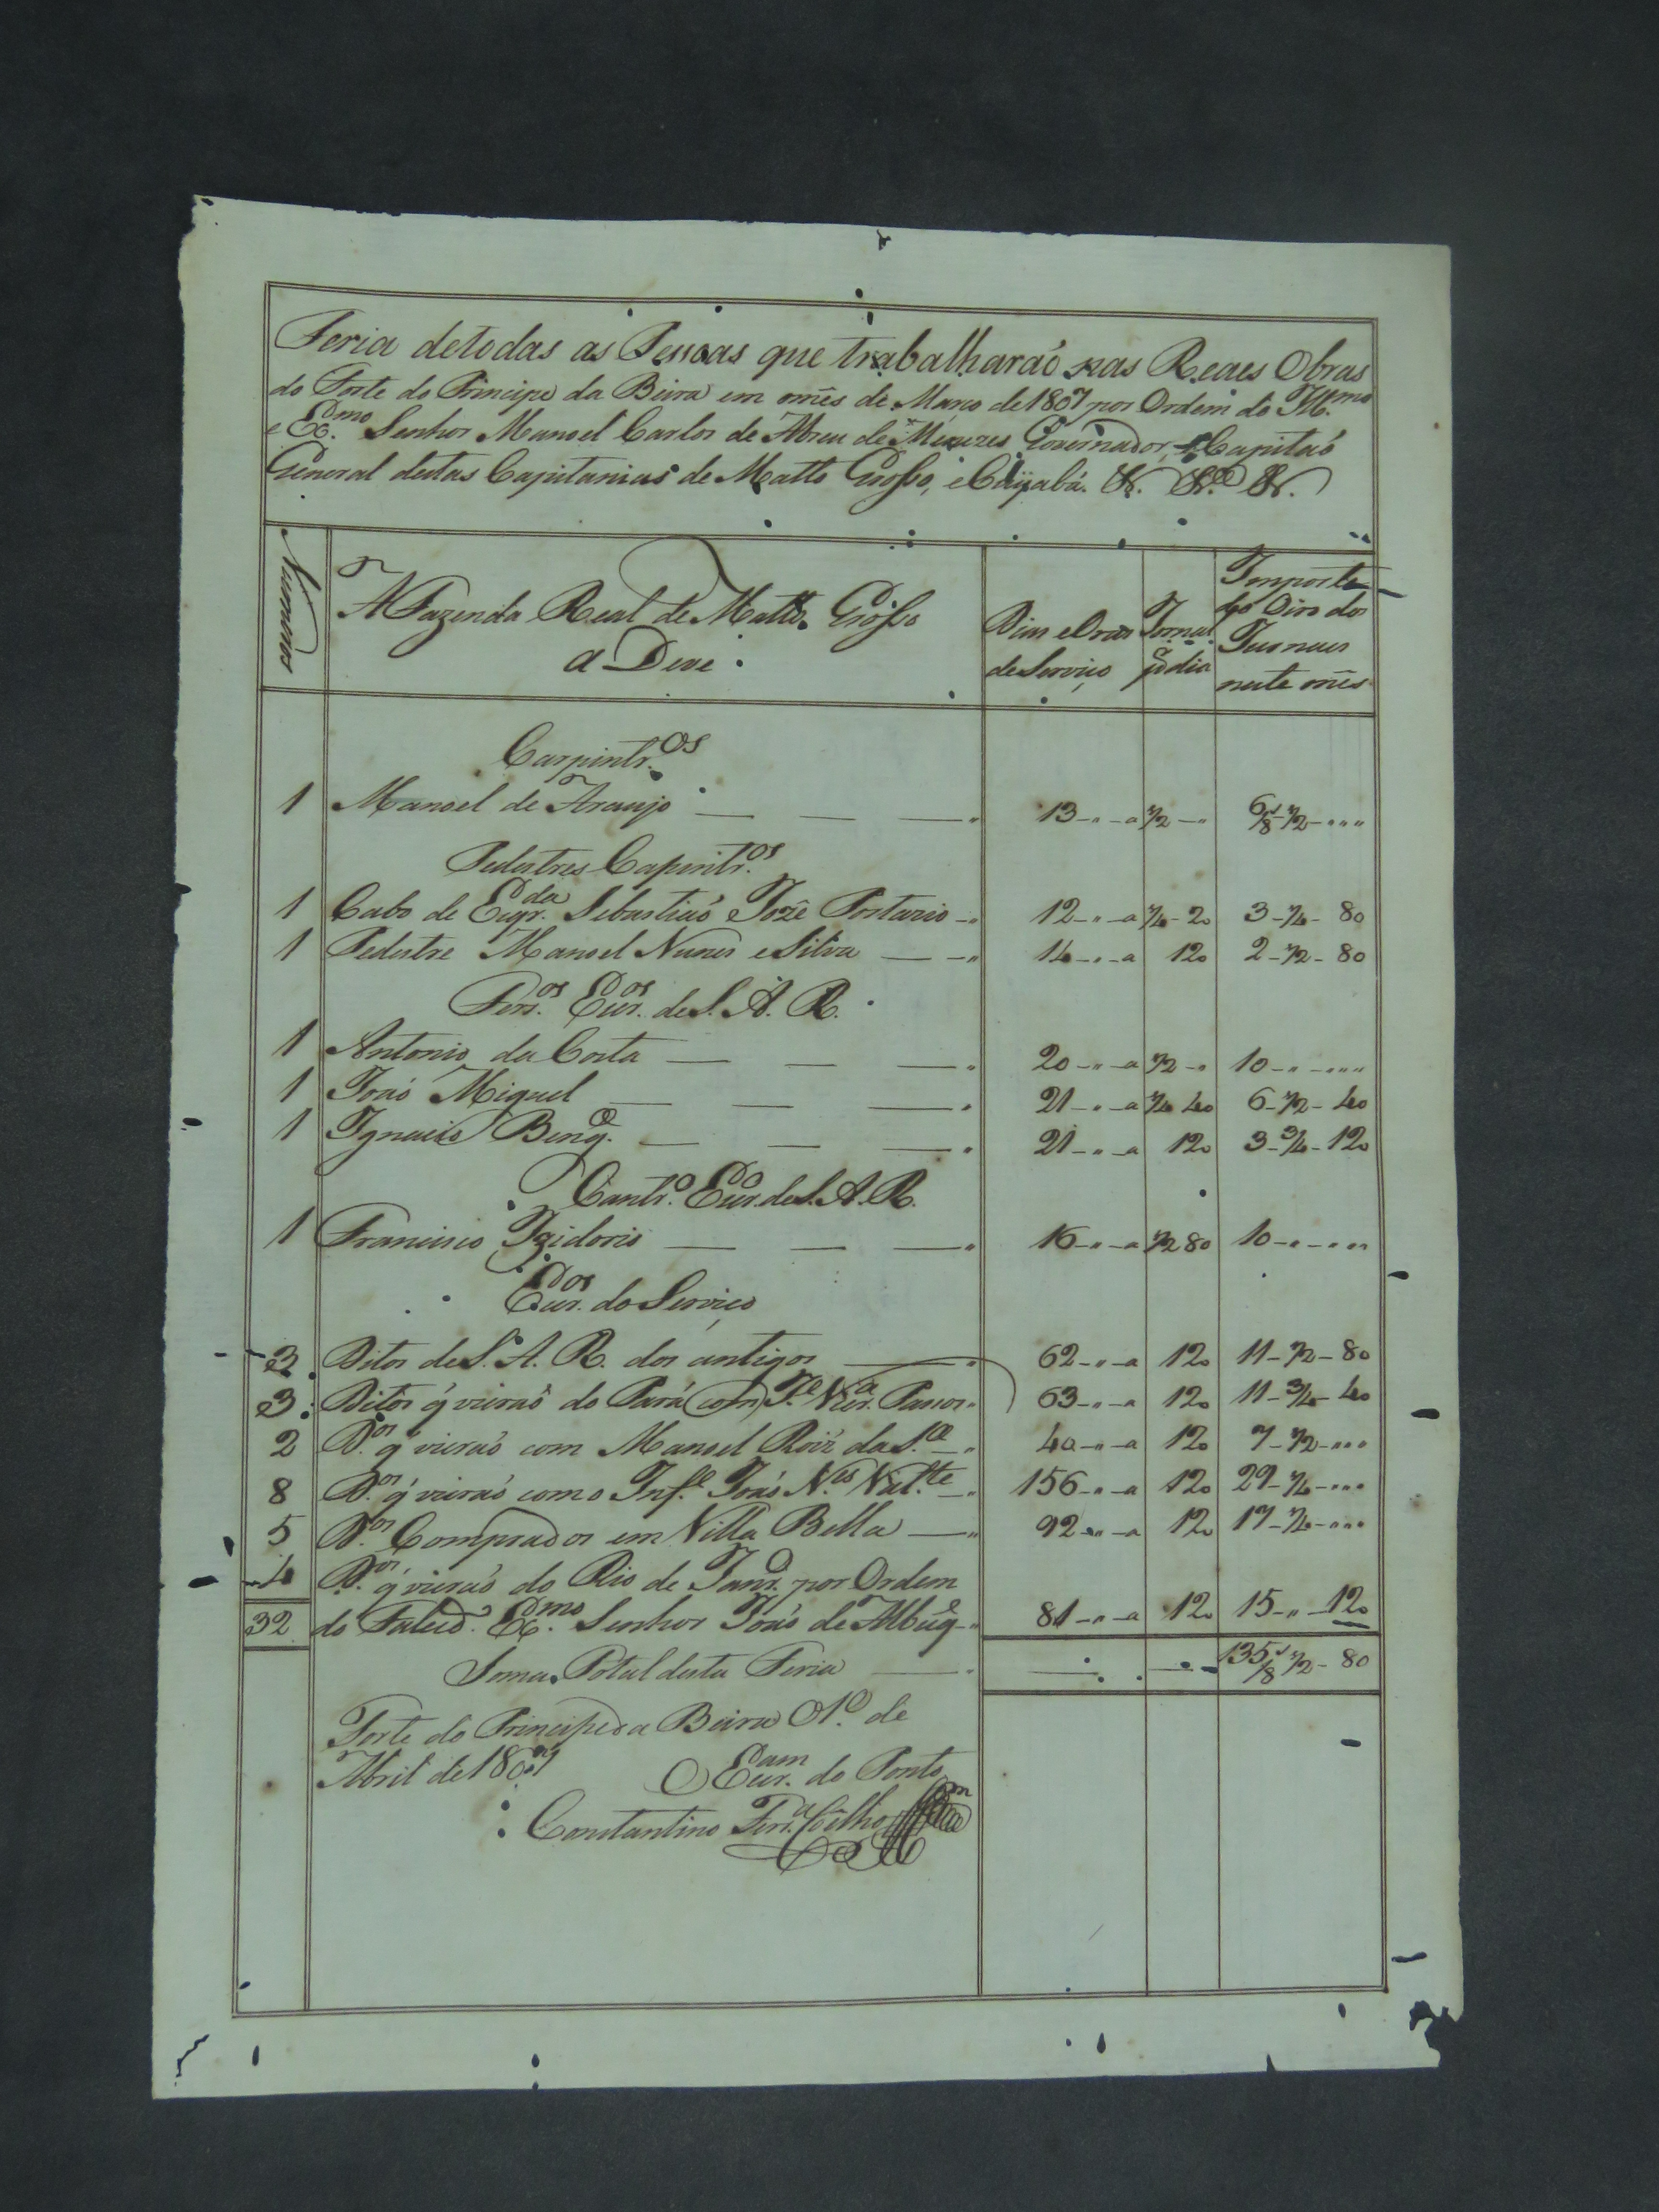 Feria detodas as Pessoas que trabalharaõ nas Reaes Obras
do Forte do Principe da Beira em mês de Março de 1807 por Ordem do Ill.mo
e Ex.mo Senhor Manoel Carlos de Abreu de Menezes, Governador, e Capitaõ
General destas Capitanias de Matto Grosso, e Cuyabá. &. &.a &.
Numeros
A Fazenda Real de Matto Grosso
a Deve
Dias e Oras
de Serviço
Jornal
p dia
Importe
do dos
Jornaes
neste mês
Carpintr.os
1 Manoel de Araujo 13 - " - a 1/2 - " 6/8 - 1/2 - " " "
Pedestres Capintr.os
1 Cabo de Esqr.da Sebastiaõ Jozé Portario 12 - " - a 1/4 - 20 3 - 1/4 - 80
1 Pedestre Manoel Nunes e Silva 14 - " - a 120 2 - 1/2 - 80
Ferr.os Escr.os de S. A. R.
1 Antonio da Costa 20 - " - a 1/2 - " 10 - " - " " "
1 Joaõ Miguel 21 - " - a 1/4 40 6 - 1/2 - 40
1 Ignacio Beng.a 21 - " - a 120 3 - 3/4 - 120
Cantr.o Escr.o de S. A. R.
1 Francisco Izidorio 16 - " - a 1/2 80 10 - " - " " "
Escr.os do Serviço
3 Ditos de S. A. R. dos antigos 62 - " - a 120 11 - 1/2 - 80
3 Ditos q̃ vieraõ do Pará com J.e Passos 63 - " - a 120 11 - 3/4 - 40
2 D.os q̃ vieraõ com Manoel Roiz da S.a 40 - " - a 120 7 - 1/2 - " " "
8 D.os q̃ vieraõ com o Inf.e Joaõ N.es 156 - " - a 120 29 - 1/4 - " " "
5 D.os Comprados em Villa Bella 92 - " - a 120 17 - 1/4 - " " "
4 D.os q̃ vieraõ do Rio de Janr.o por Ordem
32 do Falecd.o Ex.mo Senhor Joaõ de Albuq.e 81 - " - a 120 15 - " - 120
Soma Total desta Feria 135/8 1/2 - 80
Forte do Principe da Beira 01.o de
Abril de 1807
O Escr.am do Ponto
Constantino Ferr.a Coêlho